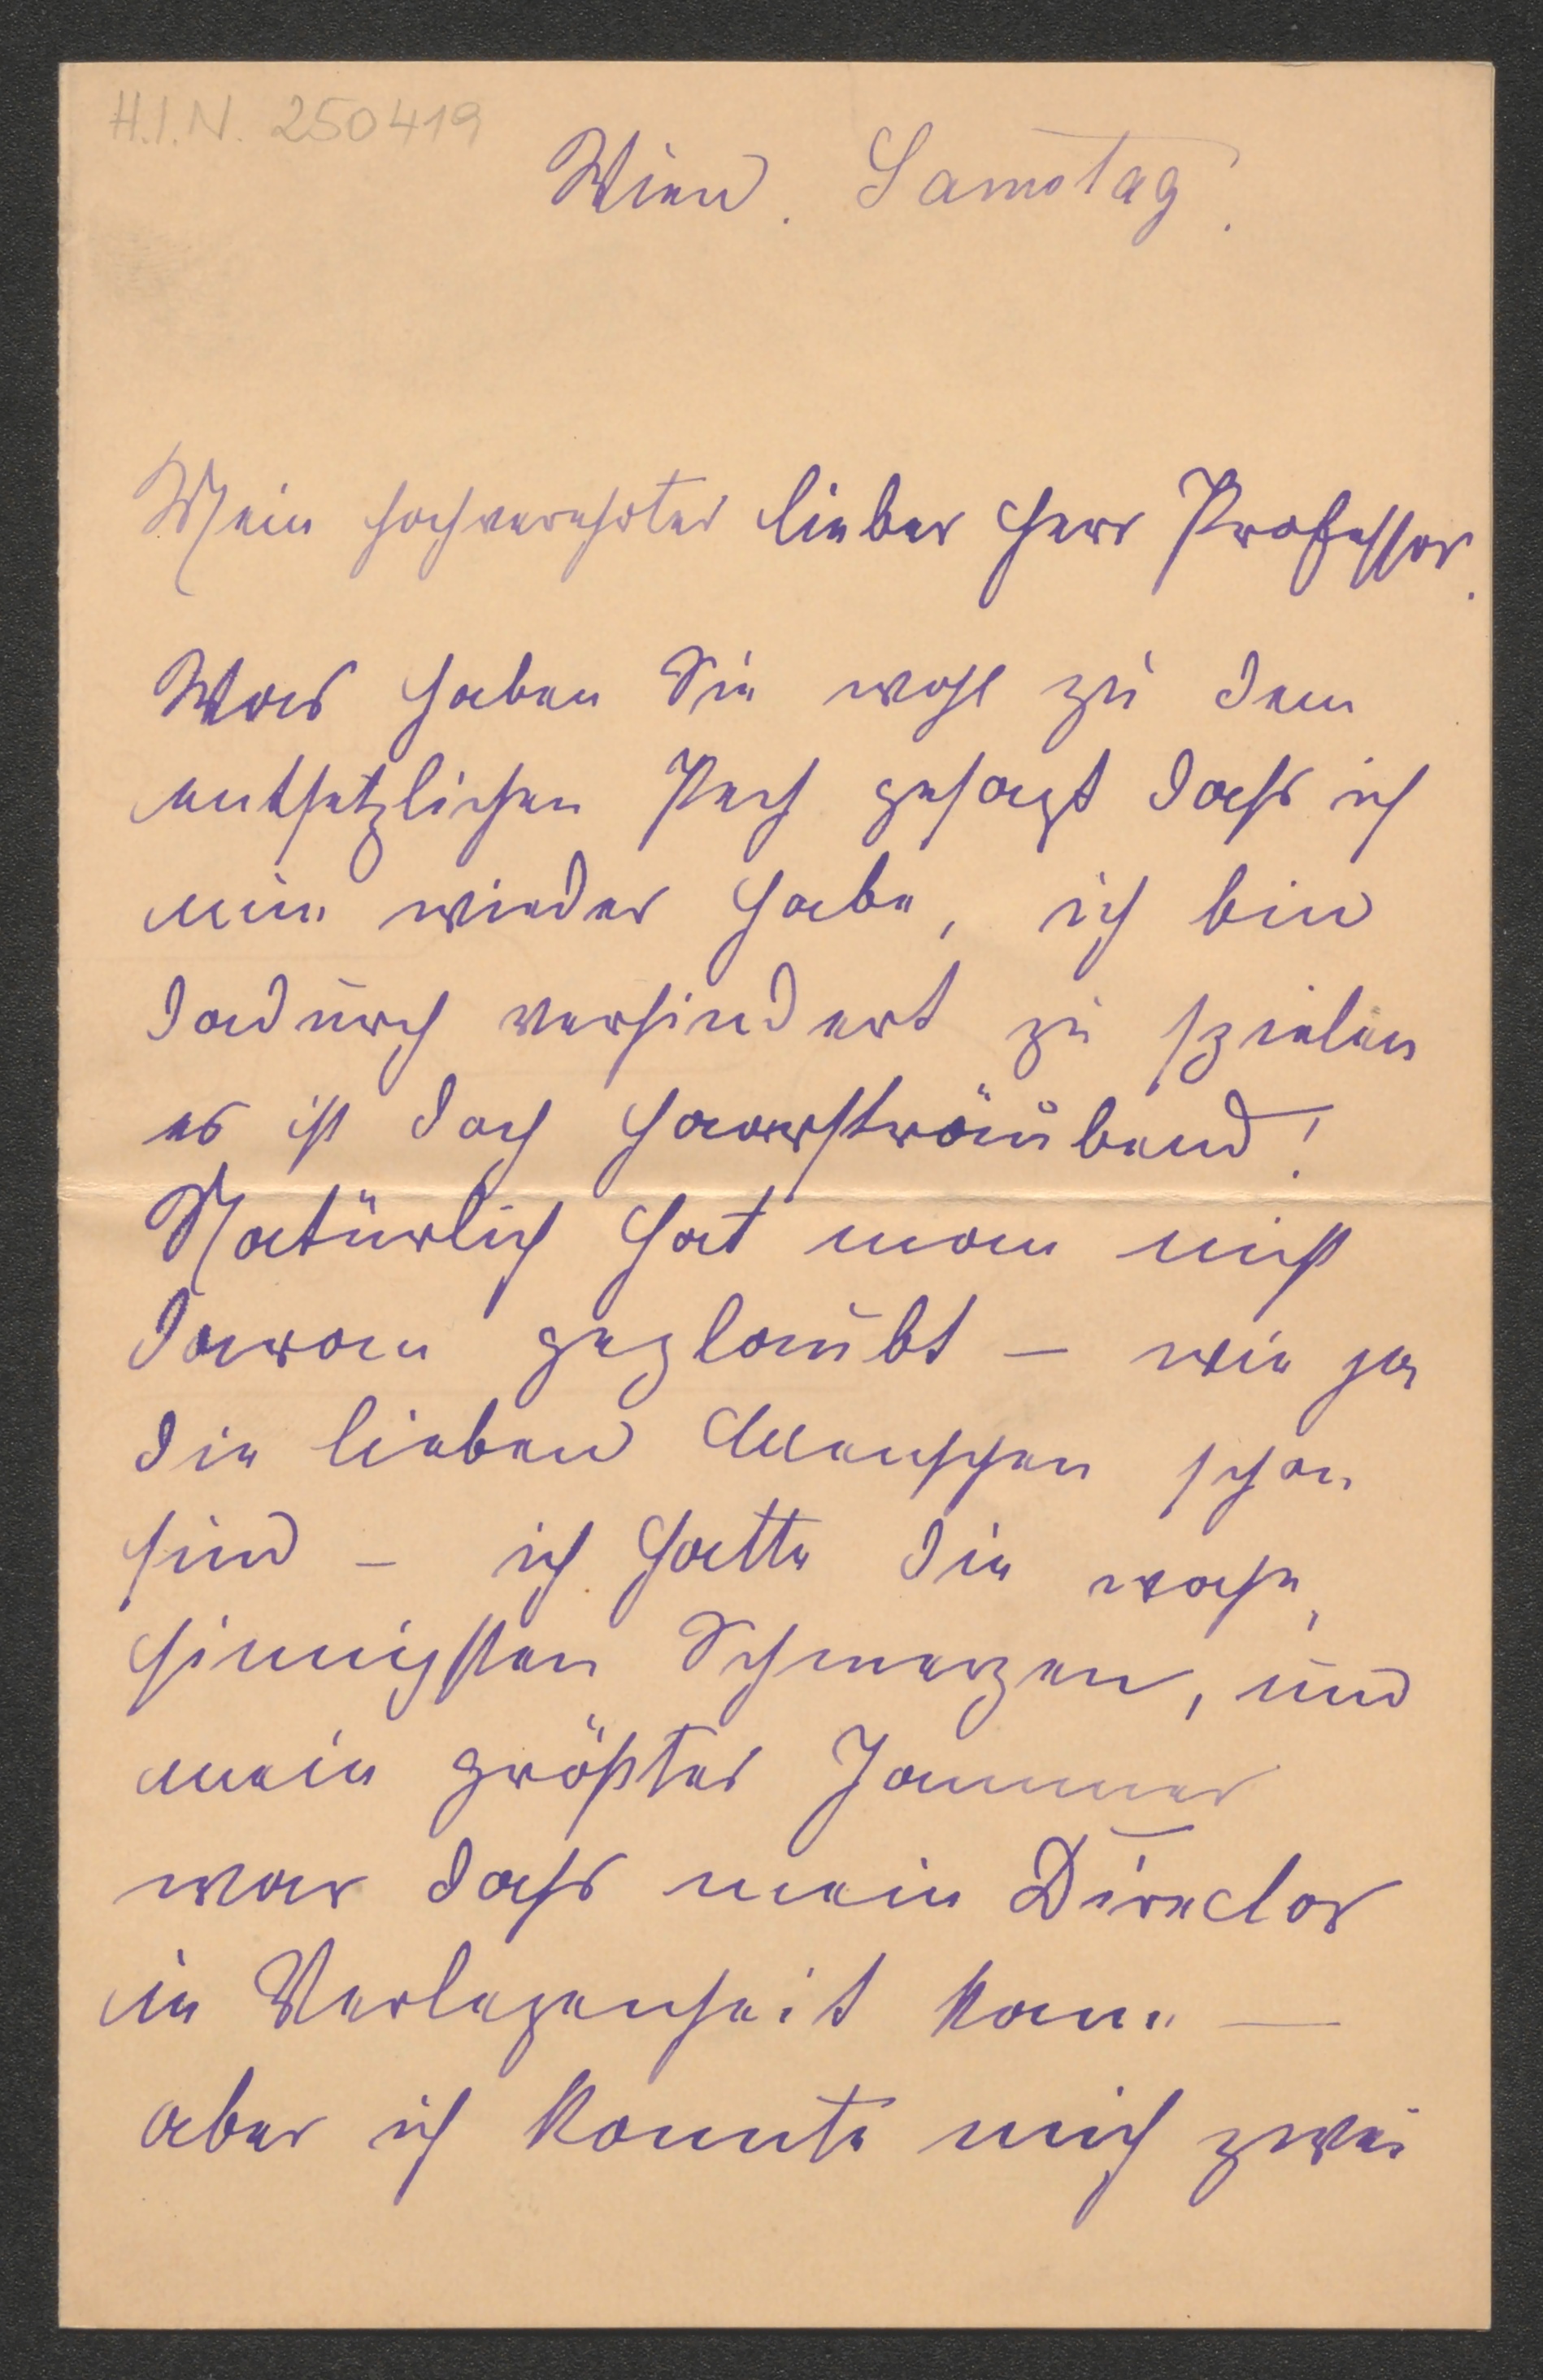 H.I.N. 250419
Wien. Samstag.
Mein hochverehrter lieber Herr Professor.
Was haben Sie wohl zu dem
entsetzlichen Pech gesagt dass ich
nun wieder habe, ich bin
dadurch verhindert zu spielen
es ist doch haarsträubend!
Natürlich hat man nicht
daran geglaubt – wie ja
die lieben Menschen schon
sind – ich hatte die wahn-
sinnigsten Schmerzen, und
mein größter Jammer
war dass mein Director
in Verlegenheit kam –
aber ich konnte mich zwei